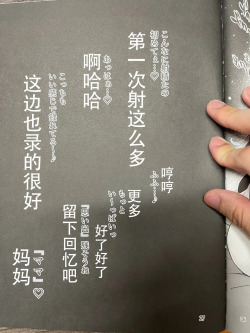 こんなに射精たの
初めてぇ…♡
第一次射这么多
あっはぁ…♡
啊哈哈
哼哼
もっと
更多
いーっぱいっ
好了好了
『思い出』残そうね
留下回忆吧
こっちも
这边也录的很好
『ママ』♡
妈妈
27